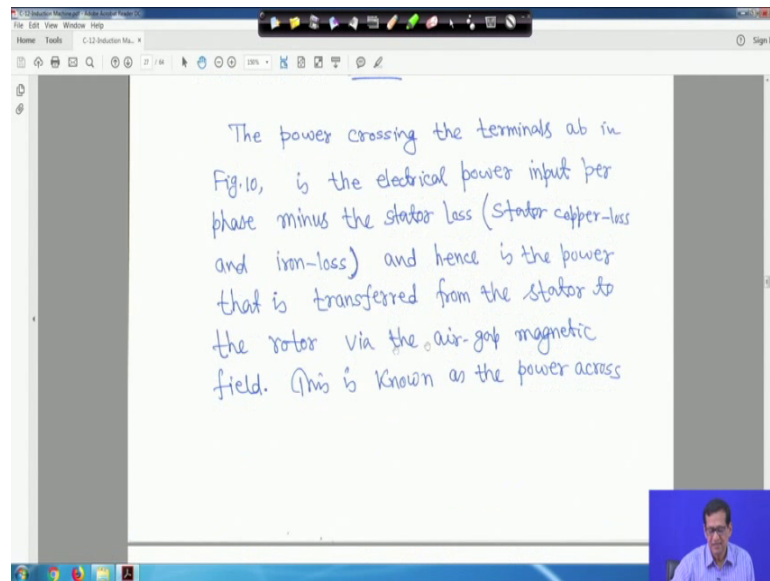 C-12-Induction Machine.pdf - Adobe Acrobat Reader DC
File Edit View Window Help
Home Tools C-12-Induction Ma... × Sign
27 / 84 150%
The power crossing the terminals ab in
Fig.10, is the electrical power input per
phase minus the stator loss (stator copper-loss
and iron-loss) and hence is the power
that is transferred from the stator to
the rotor via the air-gap magnetic
field. This is known as the power across